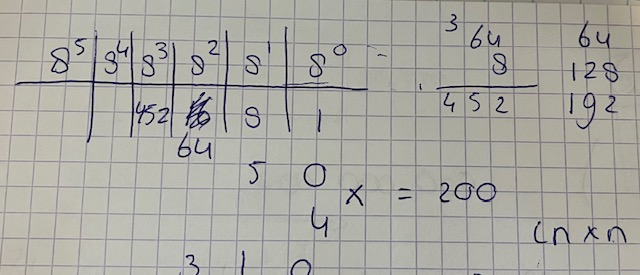 8⁵ 8⁴ 8³ 8² 8¹ 8⁰ =
452 8 1
64
3
64
8
452
64
128
192
5 0
4
x = 200
(n x n
3 1 0